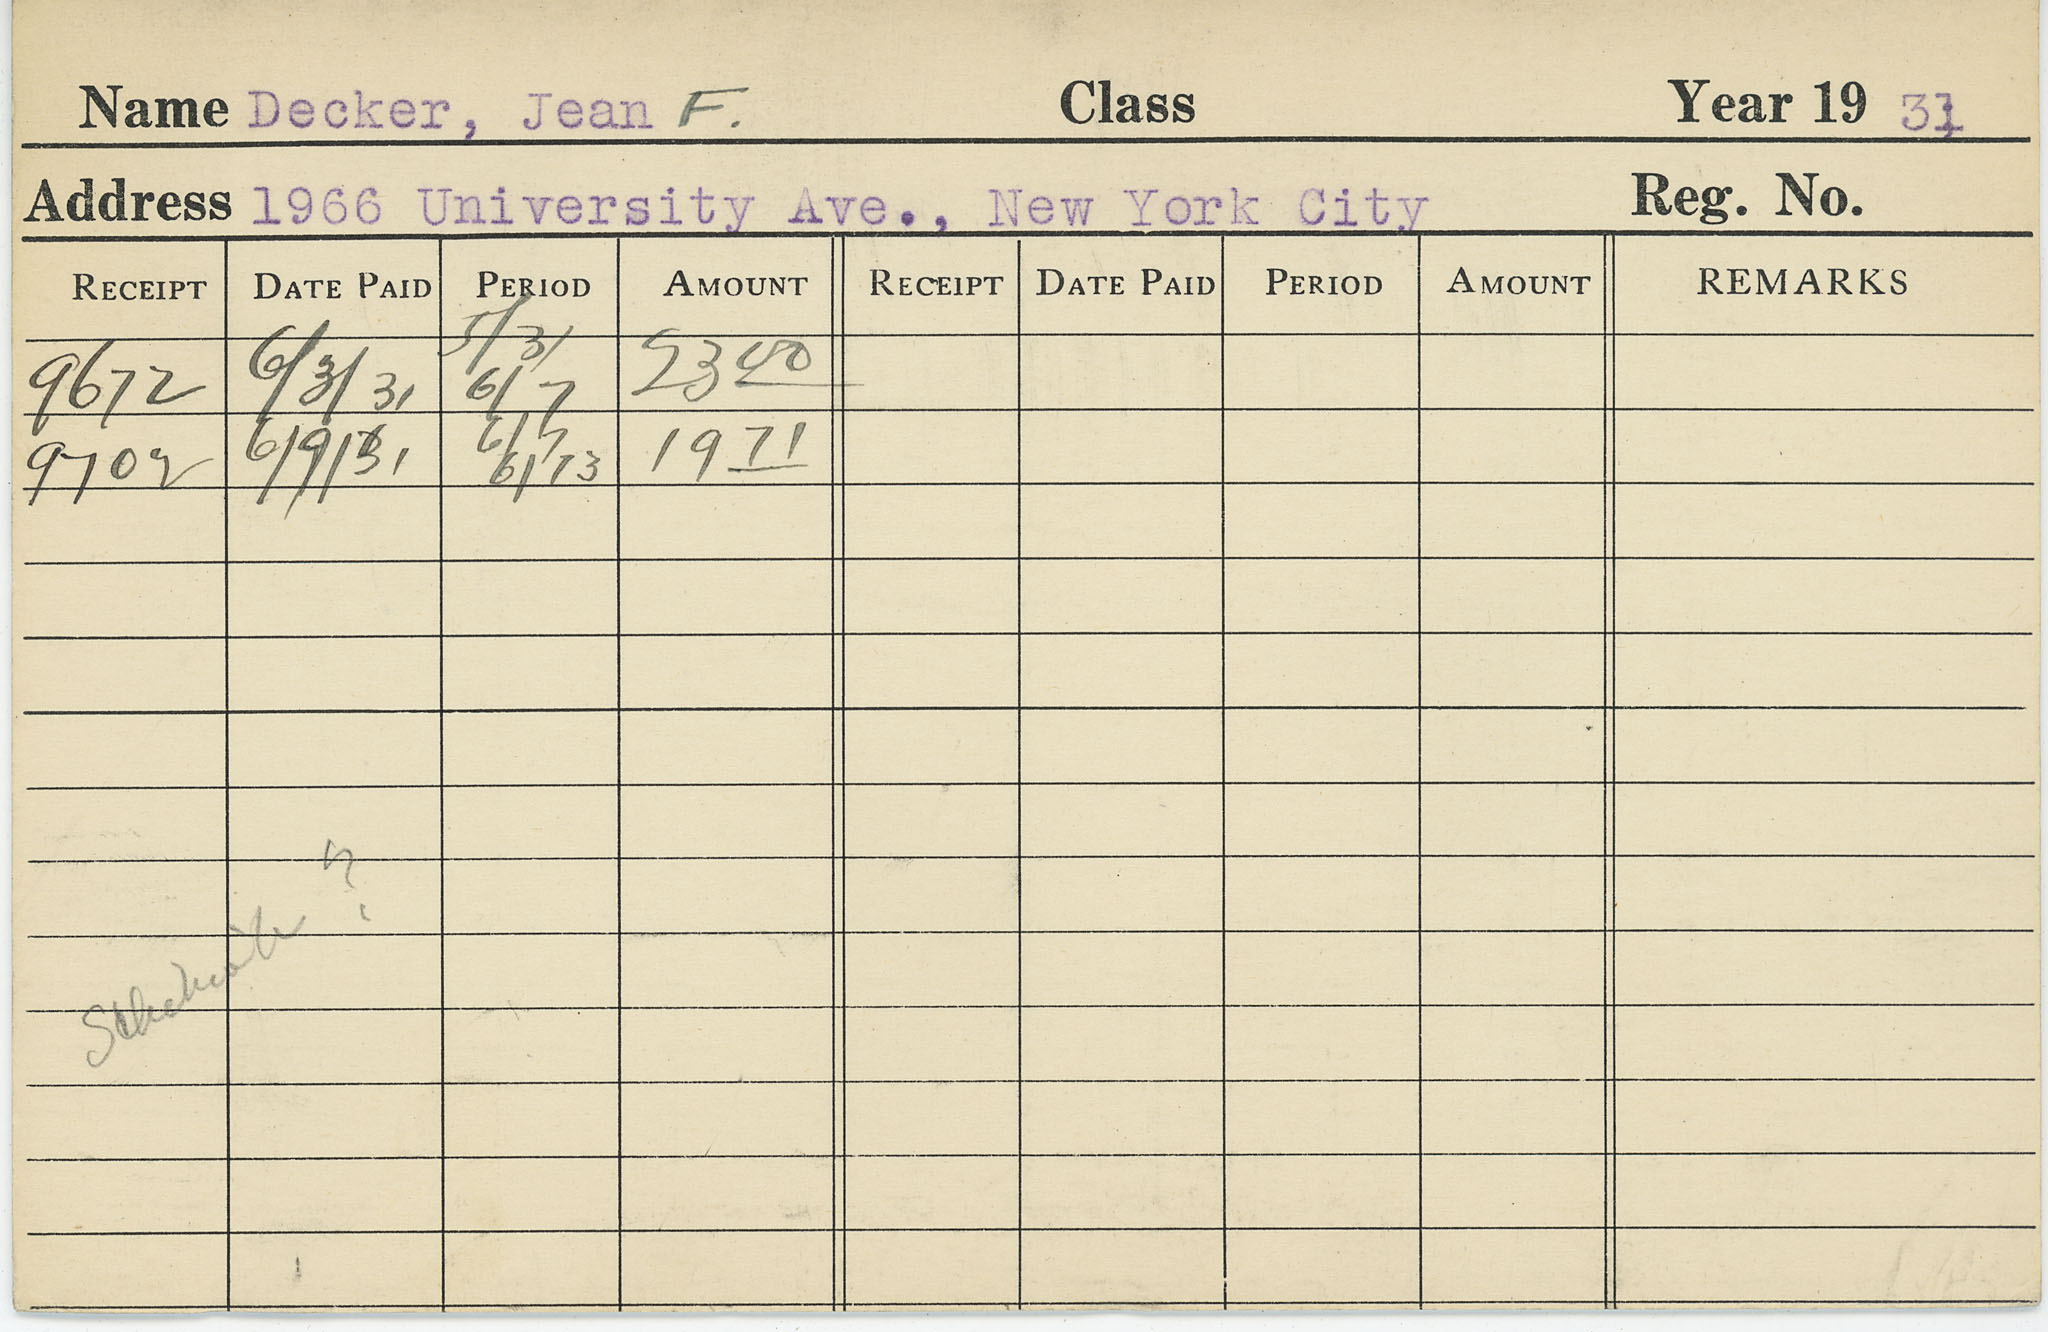 Name Decker, Jean F. Class Year 19 31
Address 1966 University Ave., New York City Reg. No.
RECEIPT DATE PAID PERIOD AMOUNT RECEIPT DATE PAID PERIOD AMOUNT REMARKS
5/31
9672 6/3/31 6/7 23 40
9702 6/9/31 6/7 19 71
6/13
?